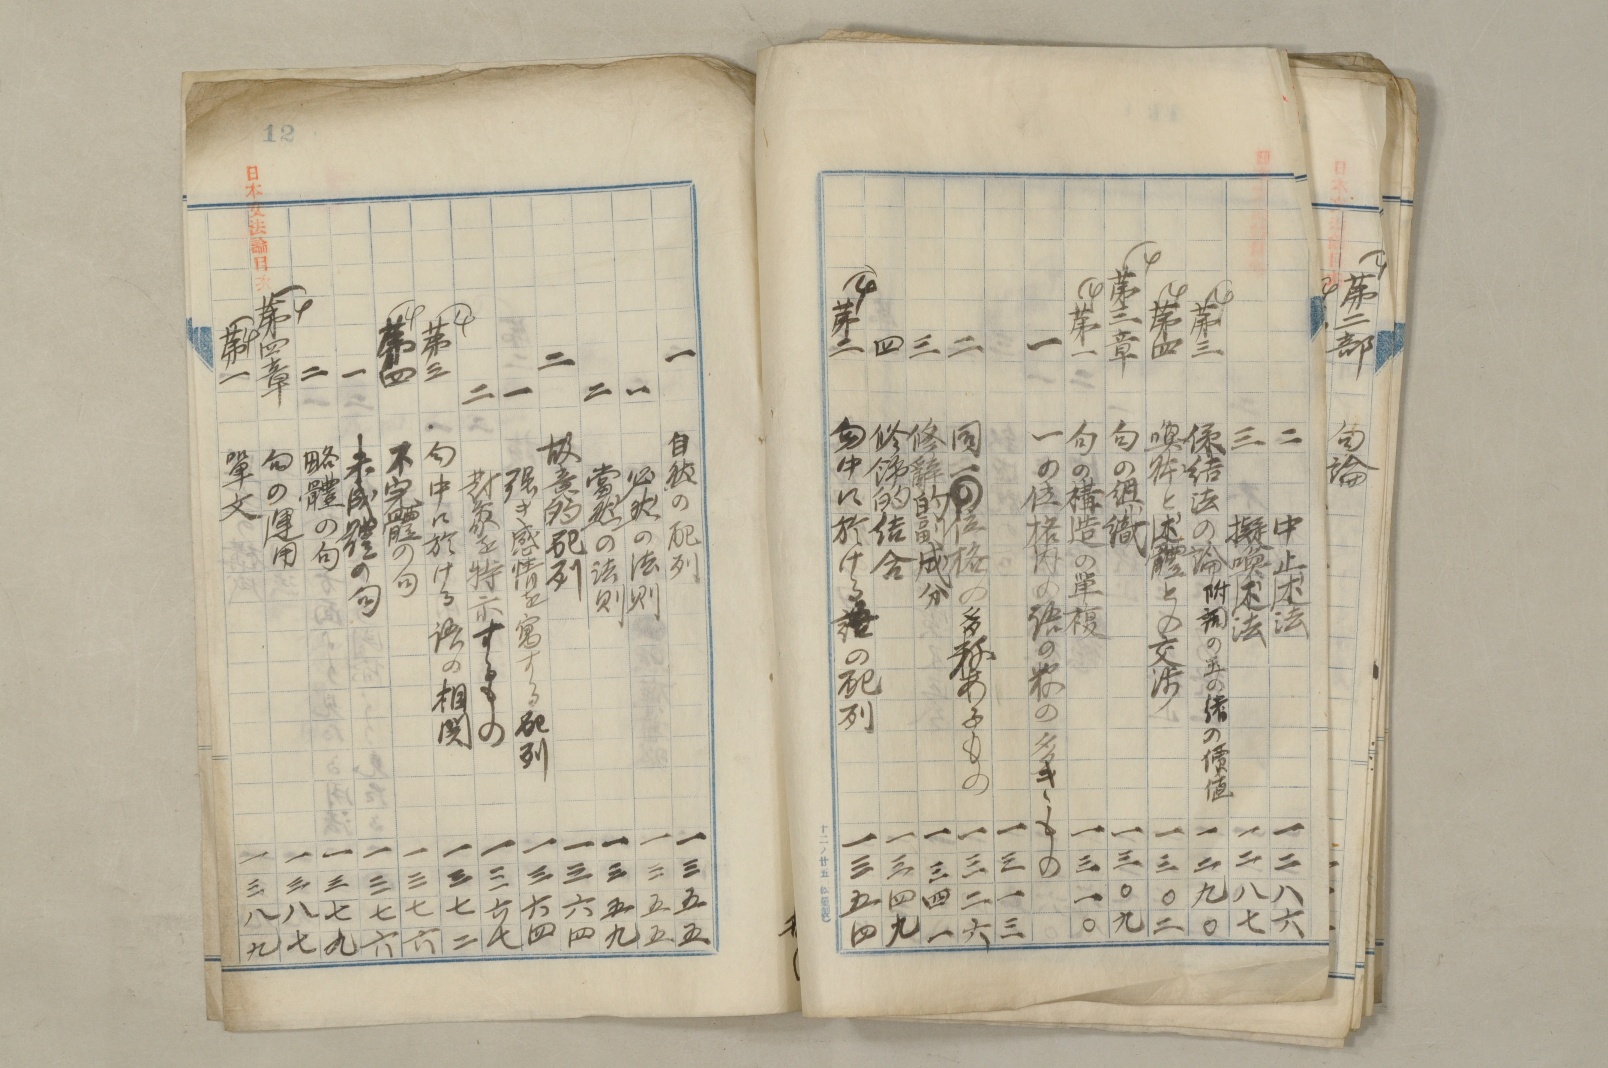 第二部 句論
二 中止法 一二八六
三 擬喚体法 一二八七
第三 係結法の論 附詞の玉の緒の價値 一二九〇
第四 喚体と述體との交渉 一三〇二
第三章 句の組織 一三〇九
第一 句の構造の單複 一三一〇
一 一の位格内の語の数の多きもの 一三一三
二 同一の位格の多数あるもの 一三二六
三 修辭的副成分 一三四一
四 修飾的結合 一三四九
第二 句中に於ける語の配列 一三五四
一 自然の配列 一三五五
一 必然の法則 一三五五
二 當然の法則 一三五九
二 故意的配列 一三六四
一 强き感情を寫する配列 一三六四
二 對象を特示するもの 一三六七
第三 句中に於ける語の相関 一三七二
第四 不完體の句 一三七六
一 未成體の句 一三七六
二 略體の句 一三七九
第四章 句の運用 一三八七
第一 單文 一三八九
日本文法論目次
12